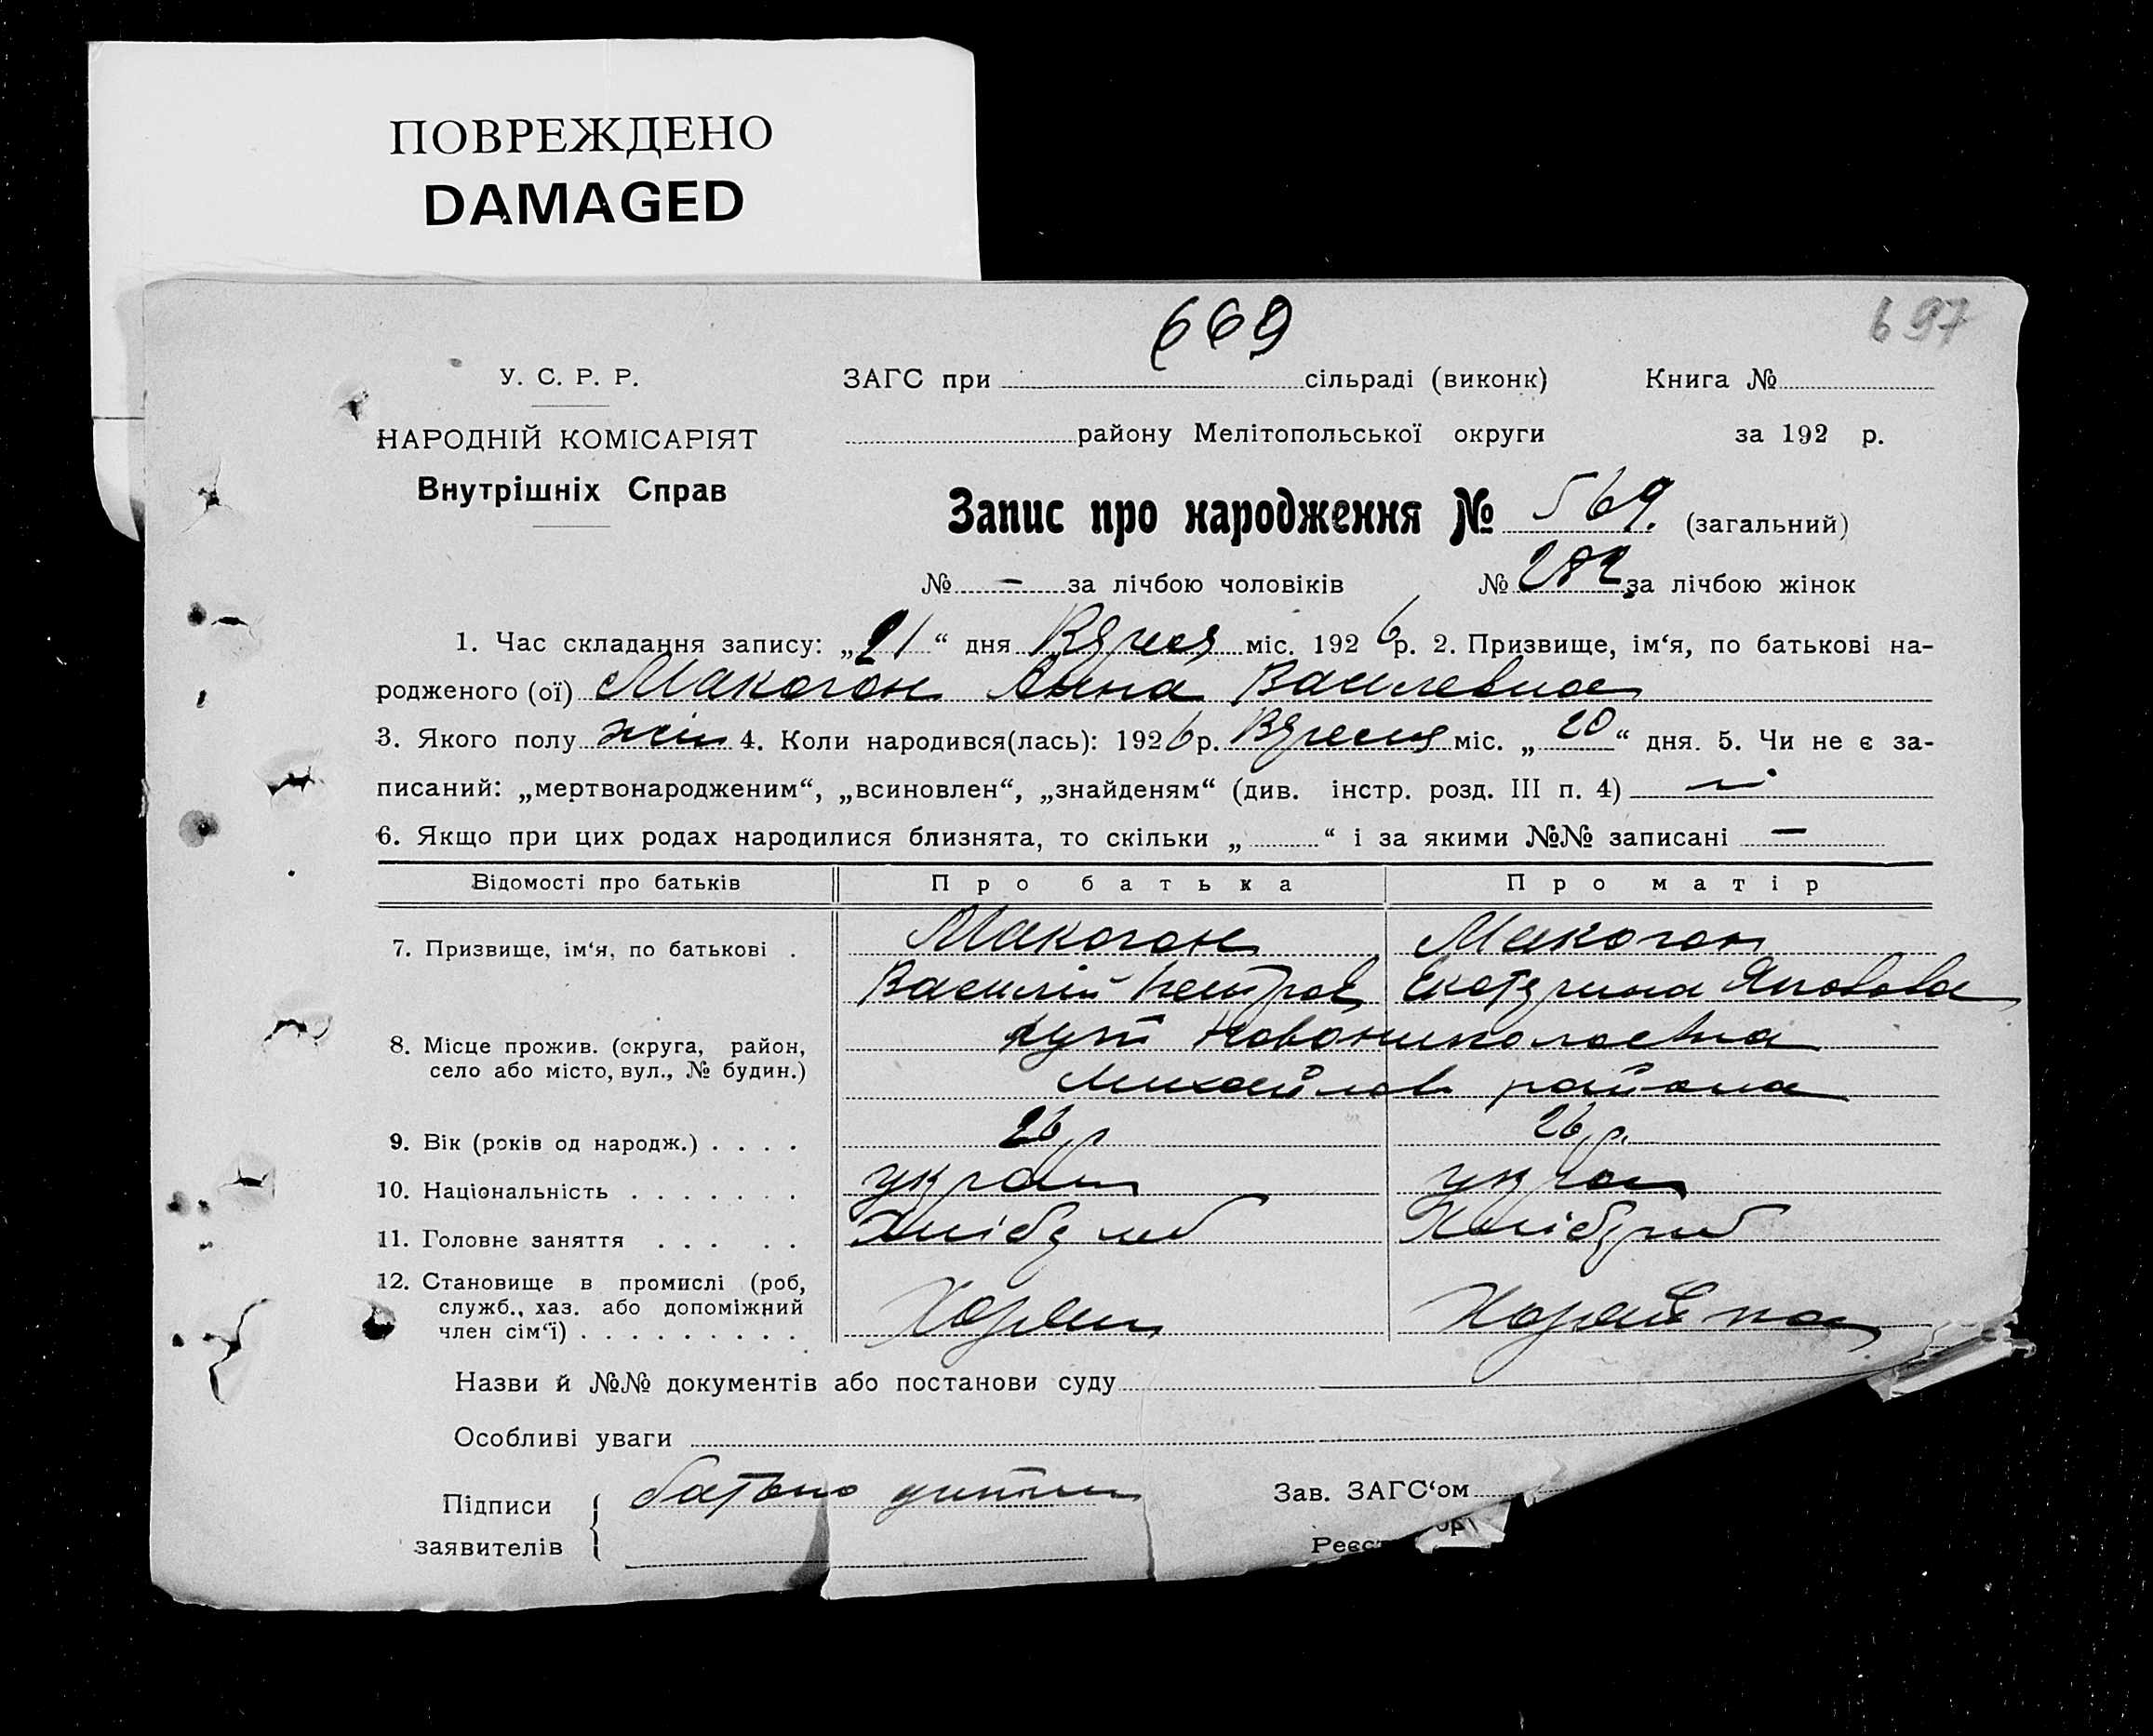 ПОВРЕЖДЕНО
DAMAGED
669
697
У. С. Р. Р.
ЗАГС при сільраді (виконк) Книга №
НАРОДНІЙ КОМІСАРІЯТ
району Мелітопольської округи за 192 р.
Внутрішніх Справ
Запис про народження № 569. (загальний)
№ — за лічбою чоловіків № 282 за лічбою жінок
1. Час складання запису: „21“ дня Вересня міс. 1926 р. 2. Призвище, ім‘я, по батькові на-
родженого (ої) Макогон Анна Василевна
3. Якого полу жін 4. Коли народився(лась): 1926 р. Вересня міс. „20“ дня. 5. Чи не є за-
писаний: „мертвонародженим“, „всиновлен“, „знайденям“ (див. інстр. розд. III п. 4) ні
6. Якщо при цих родах народилися близнята, то скільки „ “ і за якими №№ записані —
Відомості про батьків Про батька Про матір
7. Призвище, ім‘я, по батькові . Макогон Макогон
Василій Петров Екатерина Яковова
8. Місце прожив. (округа, район, село або місто, вул., № будин.) хут Новониколаевка
Михайлов района
9. Вік (років од народж.) . . . . 26 р 26 р.
10. Національність . . . . . . . украін украін
11. Головне заняття . . . . . Хлібороб Хлібороб
12. Становище в промислі (роб,
служб., хаз. або допоміжний
член сім‘ї) . . . . . . . . . Хазяин Хазяйка
Назви й №№ документів або постанови суду
Особливі уваги
Підписи батько дитини Зав. ЗАГС‘ом
заявителів Реєст